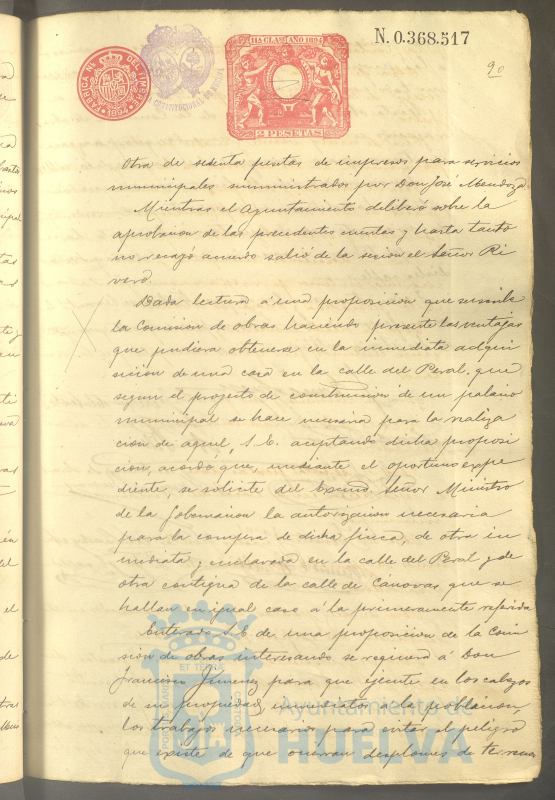 N. 0.368.517
11ª CLASE AÑO 1894
FABRICA NAL. DEL TIMBRE
1894
CONSTITUCIONAL DE HUELVA
2 PESETAS
90
Otra de sesenta pesetas de impresos para servicios
municipales suministrados por Don José Mendoza.
Mientras el Ayuntamiento deliberó sobre la
aprobacion de las precedentes cuentas y hasta tanto
no recayó acuerdo salió de la sesion el Señor Ri
vero.
Dada lectura á una proposicion que suscribe
la Comision de obras haciendo presente las ventajas
que pudiera obtenerse en la inmediata adqui
sicion de una casa en la calle del Peral, que
segun el proyecto de construccion de un palacio
municipal se hace necesaria para la realiza
cion de aquel, S. E. aceptando dicha proposi
cion, acordó que, mediante el oportuno expe
diente, se solicite del Excmo. Señor Ministro
de la Gobernacion la autorizacion necesaria
para la compra de dicha finca, de otra in
mediata y enclavada en la calle del Peral y de
otra contigua de la calle de Canovas que se
hallan en igual caso á la primeramente referida
Enterado S. E. de una proposicion de la Comi
sion de obras interesando se requiera á Don
Francisco Jimenez para que ejecute en los cabezos
de su propiedad, inmediatos á la poblacion,
los trabajos necesarios para evitar el peligro
que existe de que ocurran desplomes de terreno
ET TERRA
Ayuntamiento de
HUELVA